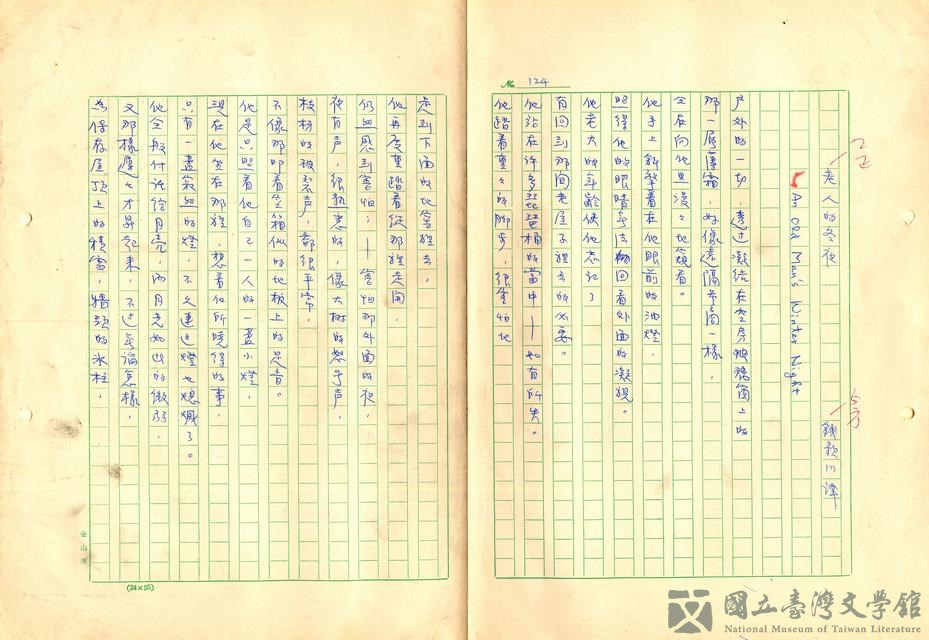 № 124
老人的冬夜
2正
An Old Man's Winter Night
錢歌川譯
5方
戶外的一切,透过凝结在空房玻璃窗上的
那一层薄霜,好像
全在向他黑漫々地窺看。
他手上斜擎着在他眼前的油燈,
照得他的眼睛無法回看外面的凝視。
他老大的年齡使他忘記了
有回到那间老屋子裡去的必要。
他站在许多琵琶桶的當中——如有所失。
他踏着重々的脚步,很害怕地
走到下面的地窖裡去,
他再度重踏着從那裡走開,
仍無感到害怕;——害怕那外面的夜,
夜有声,很熟悉的,像大树的怒号声,
枝杈的破裂声,都很平常,
不像那叩着坐箱似的地板上的足音。
他是只照着他自己一人的一盞小燈,
現在他坐在那裡,想着他所曉得的事,
只有一盞寂的燈,不久連这燈也熄滅了。
他全般付託给月亮,而月光如此的微弱,
又那樣遲々才昇起来,不过無論怎樣,
為保存屋頂上的積雪,牆頭的氷柱,
金山
(24×25)
國立臺灣文學館
National Museum of Taiwan Literature